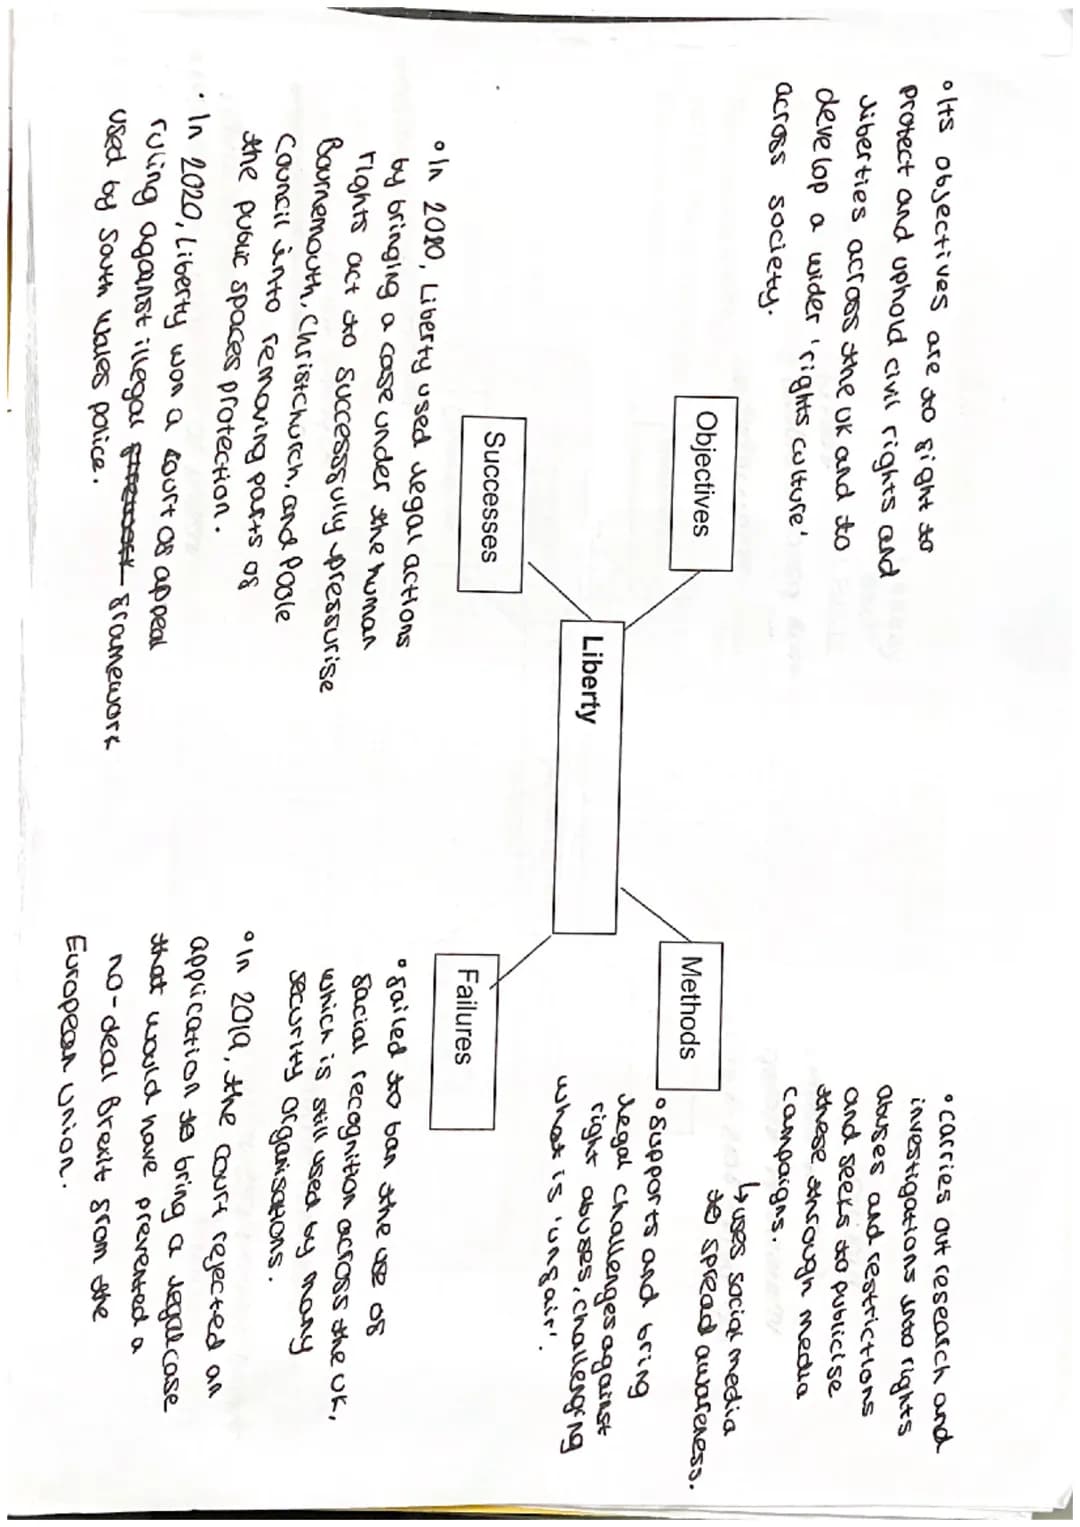 • Its objectives are to fight to
protect and uphold civil rights and
liberties across the UK and to
develop a wider 'rights culture'
across society.
Objectives
• carries out research and
investigations into rights
abuses and restrictions
and seeks to publicise
these through media
campaigns.
↳ uses social media
to spread awareness.
Methods
• Supports and bring
legal challenges against
right abuses, challenging
what is 'unfair'.
Liberty
Successes
• In 2020, Liberty used legal actions
by bringing a case under the human
rights act to successfully pressurise
Bournemouth, Christchurch, and Poole
Council into removing parts of
the public spaces protection.
• In 2020, Liberty won a court of appeal
ruling against illegal framework
used by South Wales police.
Failures
• failed to ban the use of
facial recognition across the UK,
which is still used by many
security organisations.
• In 2019, the court rejected an
application to bring a legal case
that would have prevented a
no-deal Brexit from the
European Union.